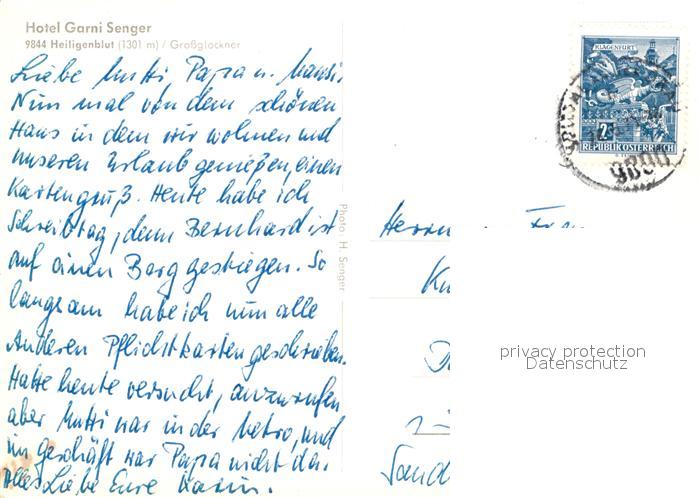 Hotel Garni Senger
9844 Heiligenblut (1301 m) / Großglockner
Liebe Mutti Papa u. Hansi.
Nun mal von dem schönen
Haus in dem wir wohnen und
unseren Urlaub genießen, einen
Kartengruß. Heute habe ich
Schreibtag, denn Bernhard ist
auf einen Berg gestiegen. So
langsam habe ich nun alle
Anderen Pflichtkarten geschrieben.
Hatte heute versucht, anzurufen
aber Mutti war in der Metro, und
im geschäft war Papa nicht da.
Alles Liebe Eure Karin.
Photo: H. Senger
KLAGENFURT
2S
REPUBLIK ÖSTERREICH
9800
Herrn
privacy protection
Datenschutz